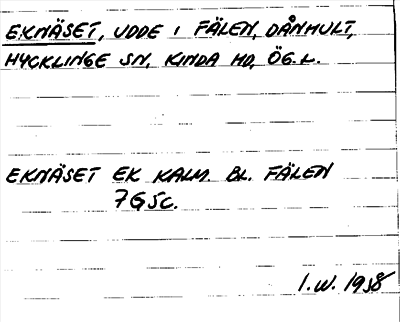 EKNÄSET, UDDE I FÄLEN, DÅNHULT,
HYCKLINGE SN, KINDA HD, ÖG. L.
EKNÄSET EK KALM. BL. FÄLEN
7G5c.
I.W. 1958